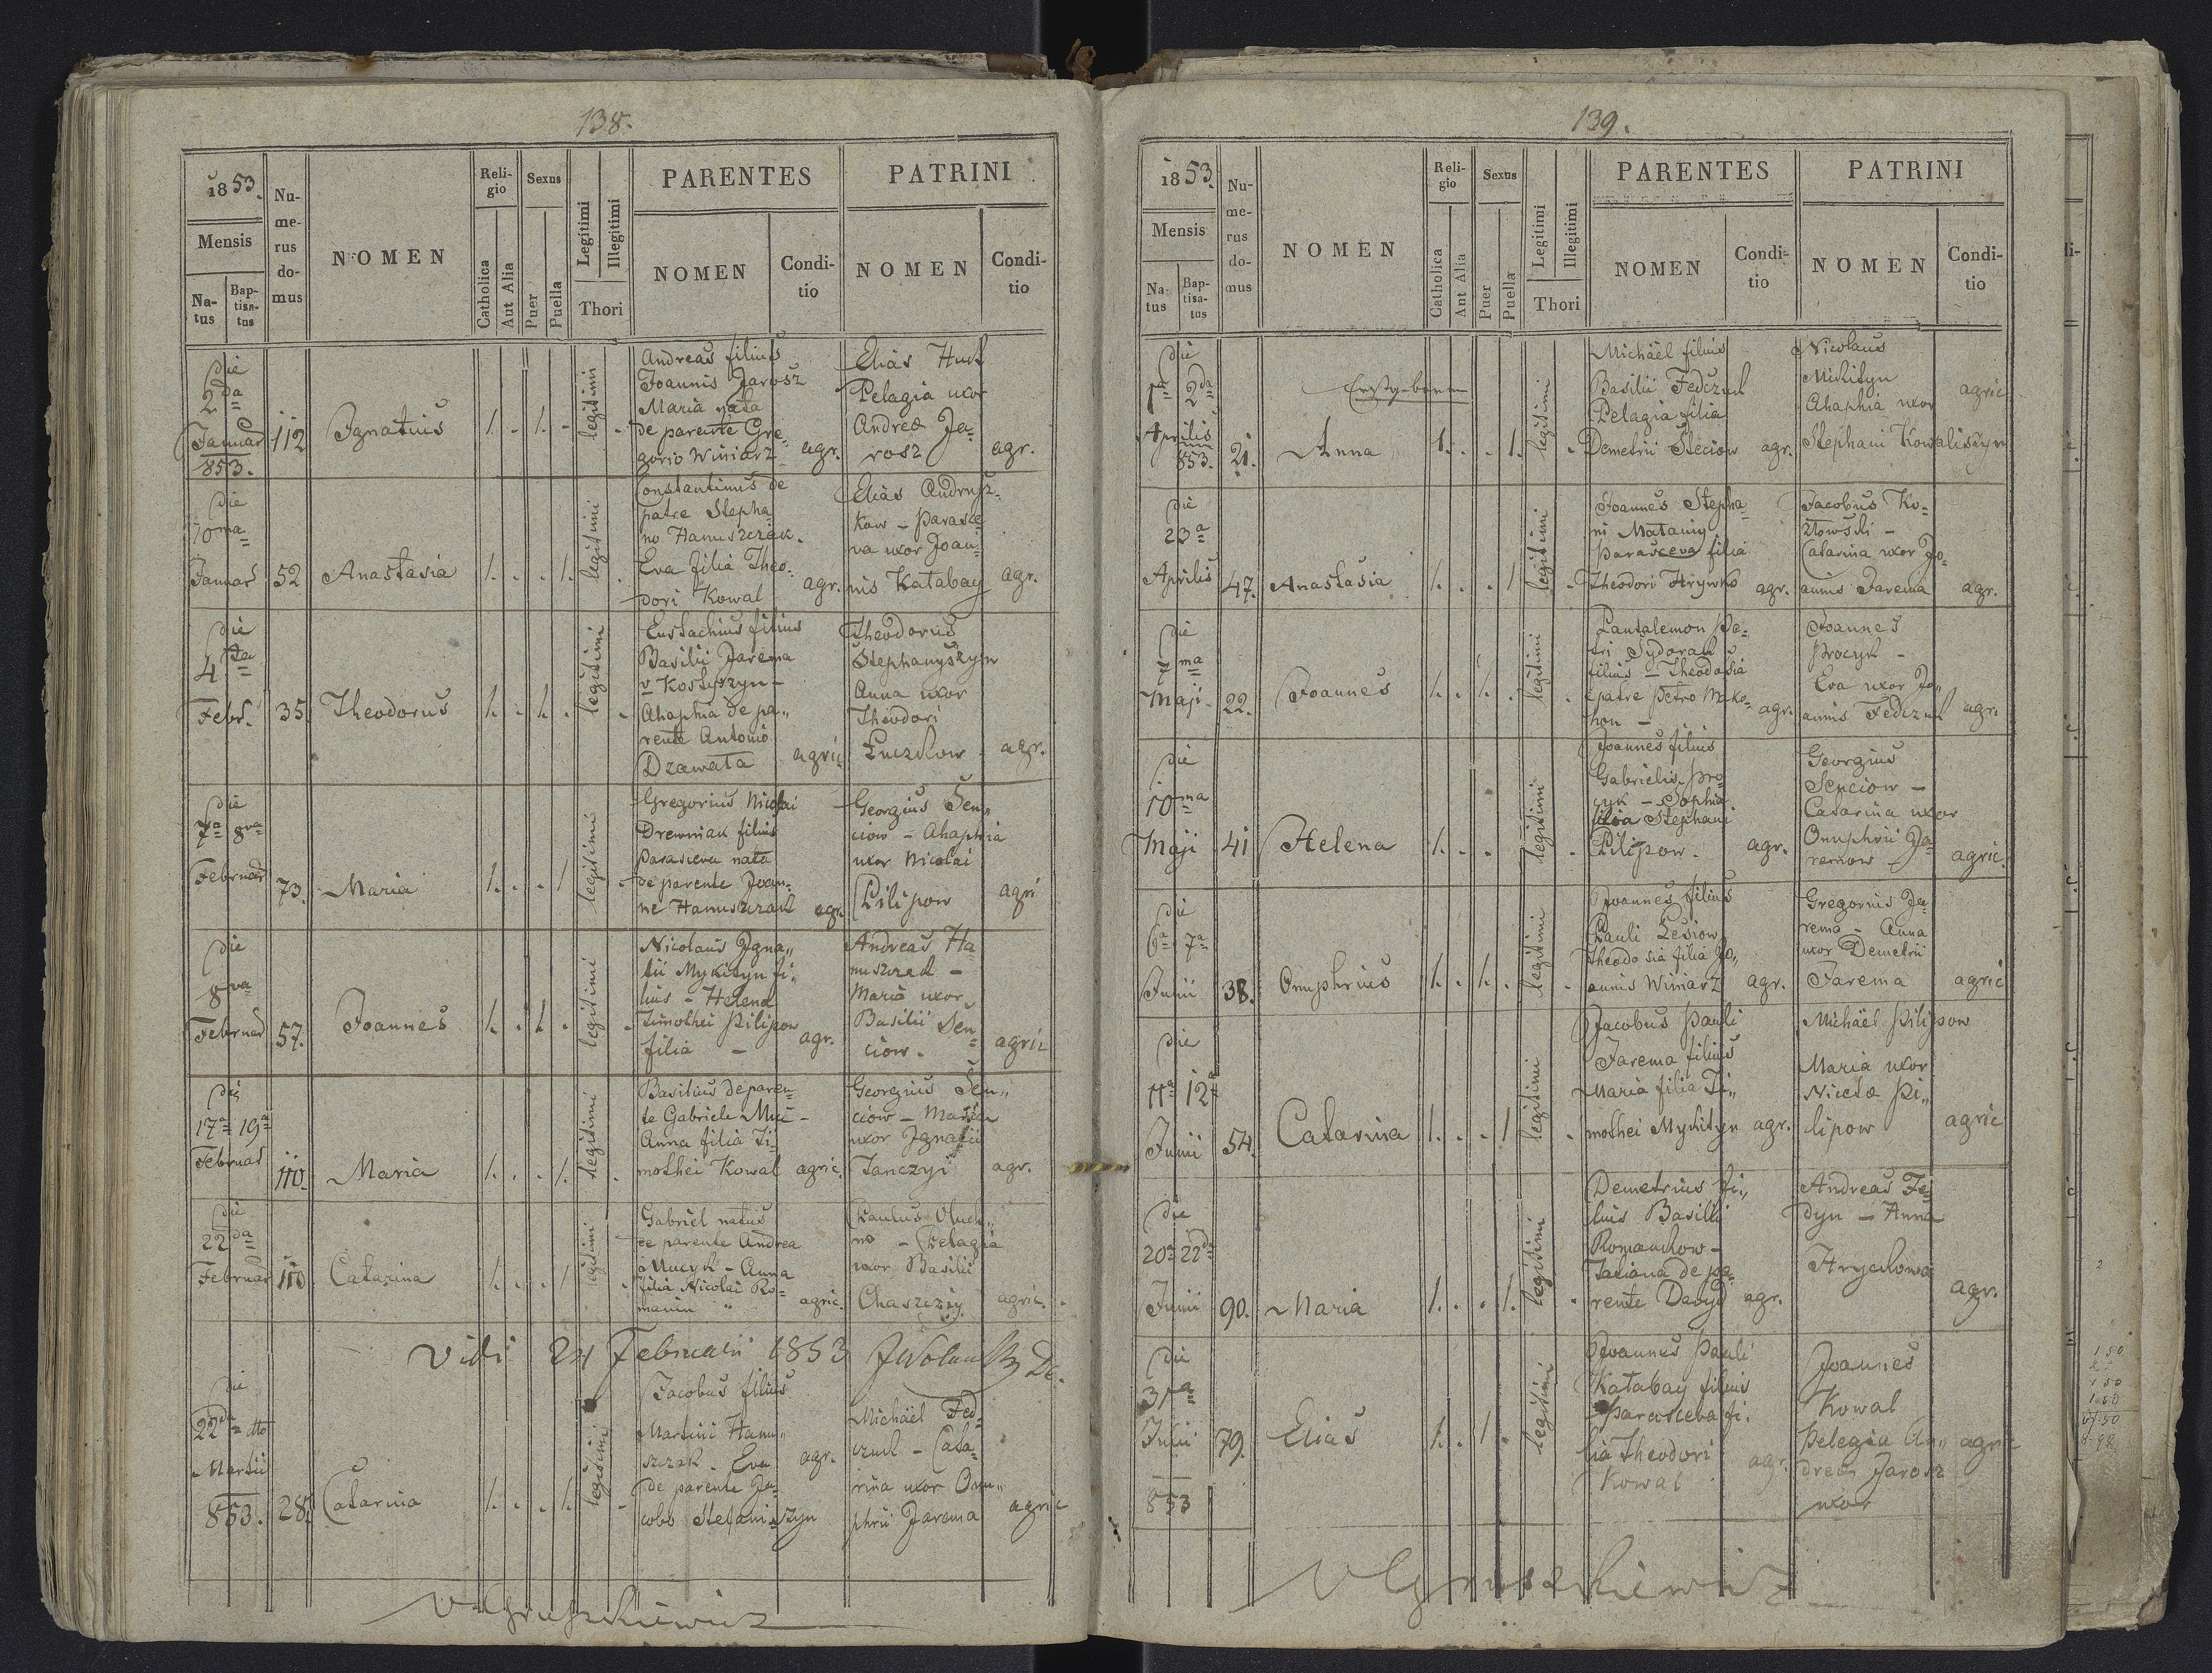 138.
1853.
Mensis
Na-
tus
Bap-
tisa-
tus
Nu-
me-
rus
do-
mus
NOMEN
Reli-
gio
Catholica
Aut Alia
Sexus
Puer
Puella
Legitimi
Illegitimi
Thori
PARENTES
NOMEN
Condi-
tio
PATRINI
NOMEN
Condi-
tio
die
2da
Januar
853.
112
Ignatius
1. - 1. -
legitimi
Andreas filius
Joannis Jarosz
Maria nata
de parente Gre-
gorio Winiarz
agr.
Elias Huk
Pelagia uxor
Andreæ Ja-
rosz
agr.
die
10ma
Januar
52
Anastasia
1. . . 1.
legitimi
Constantinus de
patre Stepha-
no Hanuszczak.
Eva filia Theo-
dori Kowal
agr.
Elias Andrusz-
kow - Parasce-
va uxor Joan-
nis Katabay
agr.
die
4ta
Febr.
35
Theodorus
1. . 1. .
legitimi
Eustachius filius
Basilii Jarema
v Kostyszyn -
Ahaphia de pa-
rente Antonio
Dzawata
agric
Theodorus
Stephanyszyn
Anna uxor
Theodori
Łuczkow
agr.
die
7a 8va
Februar
73.
Maria
1. . . 1
legitimi
Gregorius Nicolai
Drewniak filius
Parasceva nata
de parente Joan-
ne Hanuszczak
agr.
Georgius Sen-
ciow - Ahaphia
uxor Nicolai
Pilipow
agri
die
8va
Februar
57.
Joannes
1. . 1. .
legitimi
Nicolaus Igna-
tii Mykityn fi-
lius - Helena
Timothei Pilipow
filia -
agr.
Andreas Ha
nuszczak -
Maria uxor
Basilii Sen-
ciow.
agric
die
17a 19a
Februar
110.
Maria
1. . . 1.
legitimi
Basilius de paren-
te Gabriele Muc -
Anna filia Ti-
mothei Kowal
agric.
Georgius Sen-
ciow - Maria
uxor Ignatii
Janczyi
agr.
die
22da
Februar
110
Catarina
1. . . 1
legitimi
Gabriel natus
de parente Andrea
Mucyk - Anna
filia Nicolai Ro-
manin
agric.
Paulus
no - Pelagia
uxor Basilii
Chaszczij
agric.
Vidi 24 Februarii 1853
die
22da dto
Martii
853.
28.
Catarina
1. . . 1.
legitimi
Jacobus filius
Martini Hanu-
szczak - Eva
de parente Ja-
cobo Stefaniszyn
agr.
Michael Fed-
czuk - Cata-
rina uxor Onu-
phrii Jarema
agric
139.
1853.
Mensis
Na-
tus
Bap-
tisa-
tus
Nu-
me-
rus
do-
mus
NOMEN
Reli-
gio
Catholica
Aut Alia
Sexus
Puer
Puella
Legitimi
Illegitimi
Thori
PARENTES
NOMEN
Condi-
tio
PATRINI
NOMEN
Condi-
tio
die
1a 2da
Aprilis
853.
21.
Erstgeboren
Anna
1. . . 1.
legitimi
Michäel filius
Basilii Fedczuk
Pelagia filia
Demetrii Steciow
agr.
Nicolaus
Mikityn
Ahaphia uxor
Stephani Kowaliszyn
agric
die
23a
Aprilis
47.
Anastasia
1. . . 1
legitimi
Joannes Stepha-
ni Matanig
Parasceva filia
Theodori Hrywko
agr.
Jacobus Ko-
Catarina uxor Jo-
annis Jarema
agr.
die
7ma
Maji
22.
Joannes
1. . 1. .
legitimi
Pantalemon Pe-
tri Sydorak
filius - Theodosia
e patre Petro Mako-
hon -
agr.
Joannes
Procyk -
Eva uxor Jo-
annis Fedczuk
agr.
die
10ma
Maji
41
Helena
1. . .
legitimi
Joannes filius
Gabrielis Pro-
cyk - Sophia
filia Stephani
Pilipow.
agr.
Georgius
Senciow -
Catarina uxor
Onuphrii Ja-
remow
agric.
die
6a 7a
Junii
38.
Onuphrius
1. . 1. .
legitimi
Joannes filius
Pauli Lesiow
Theodosia filia Jo-
annis Winiarz
agr.
Gregorius Ja-
rema - Anna
uxor Demetrii
Jarema
agric
die
11a 12a
Junii
54.
Catarina
1. . . 1
legitimi
Jacobus Pauli
Jarema filius
Maria filia Ti-
mothei Mykityn
agr.
Michäel Pilipow
Maria uxor
Nicetæ Pi-
lipow
agric
die
20a 22da
Junii
90.
Maria
1. . . 1.
legitimi
Demetrius fi-
lius Basilii
Romankow -
Taciana de pa-
rente Davyd
agr.
Andreas Fe
dyn - Anna
Hryckowa
agr.
die
31a
Julii
853
79.
Elias
1. . 1.
legitimi
Joannes Pauli
Katabay filius
Parasceva fi-
lia Theodori
Kowal
agr.
Joannes
Kowal
Pelegia An-
dreæ Jarosz
uxor
agr